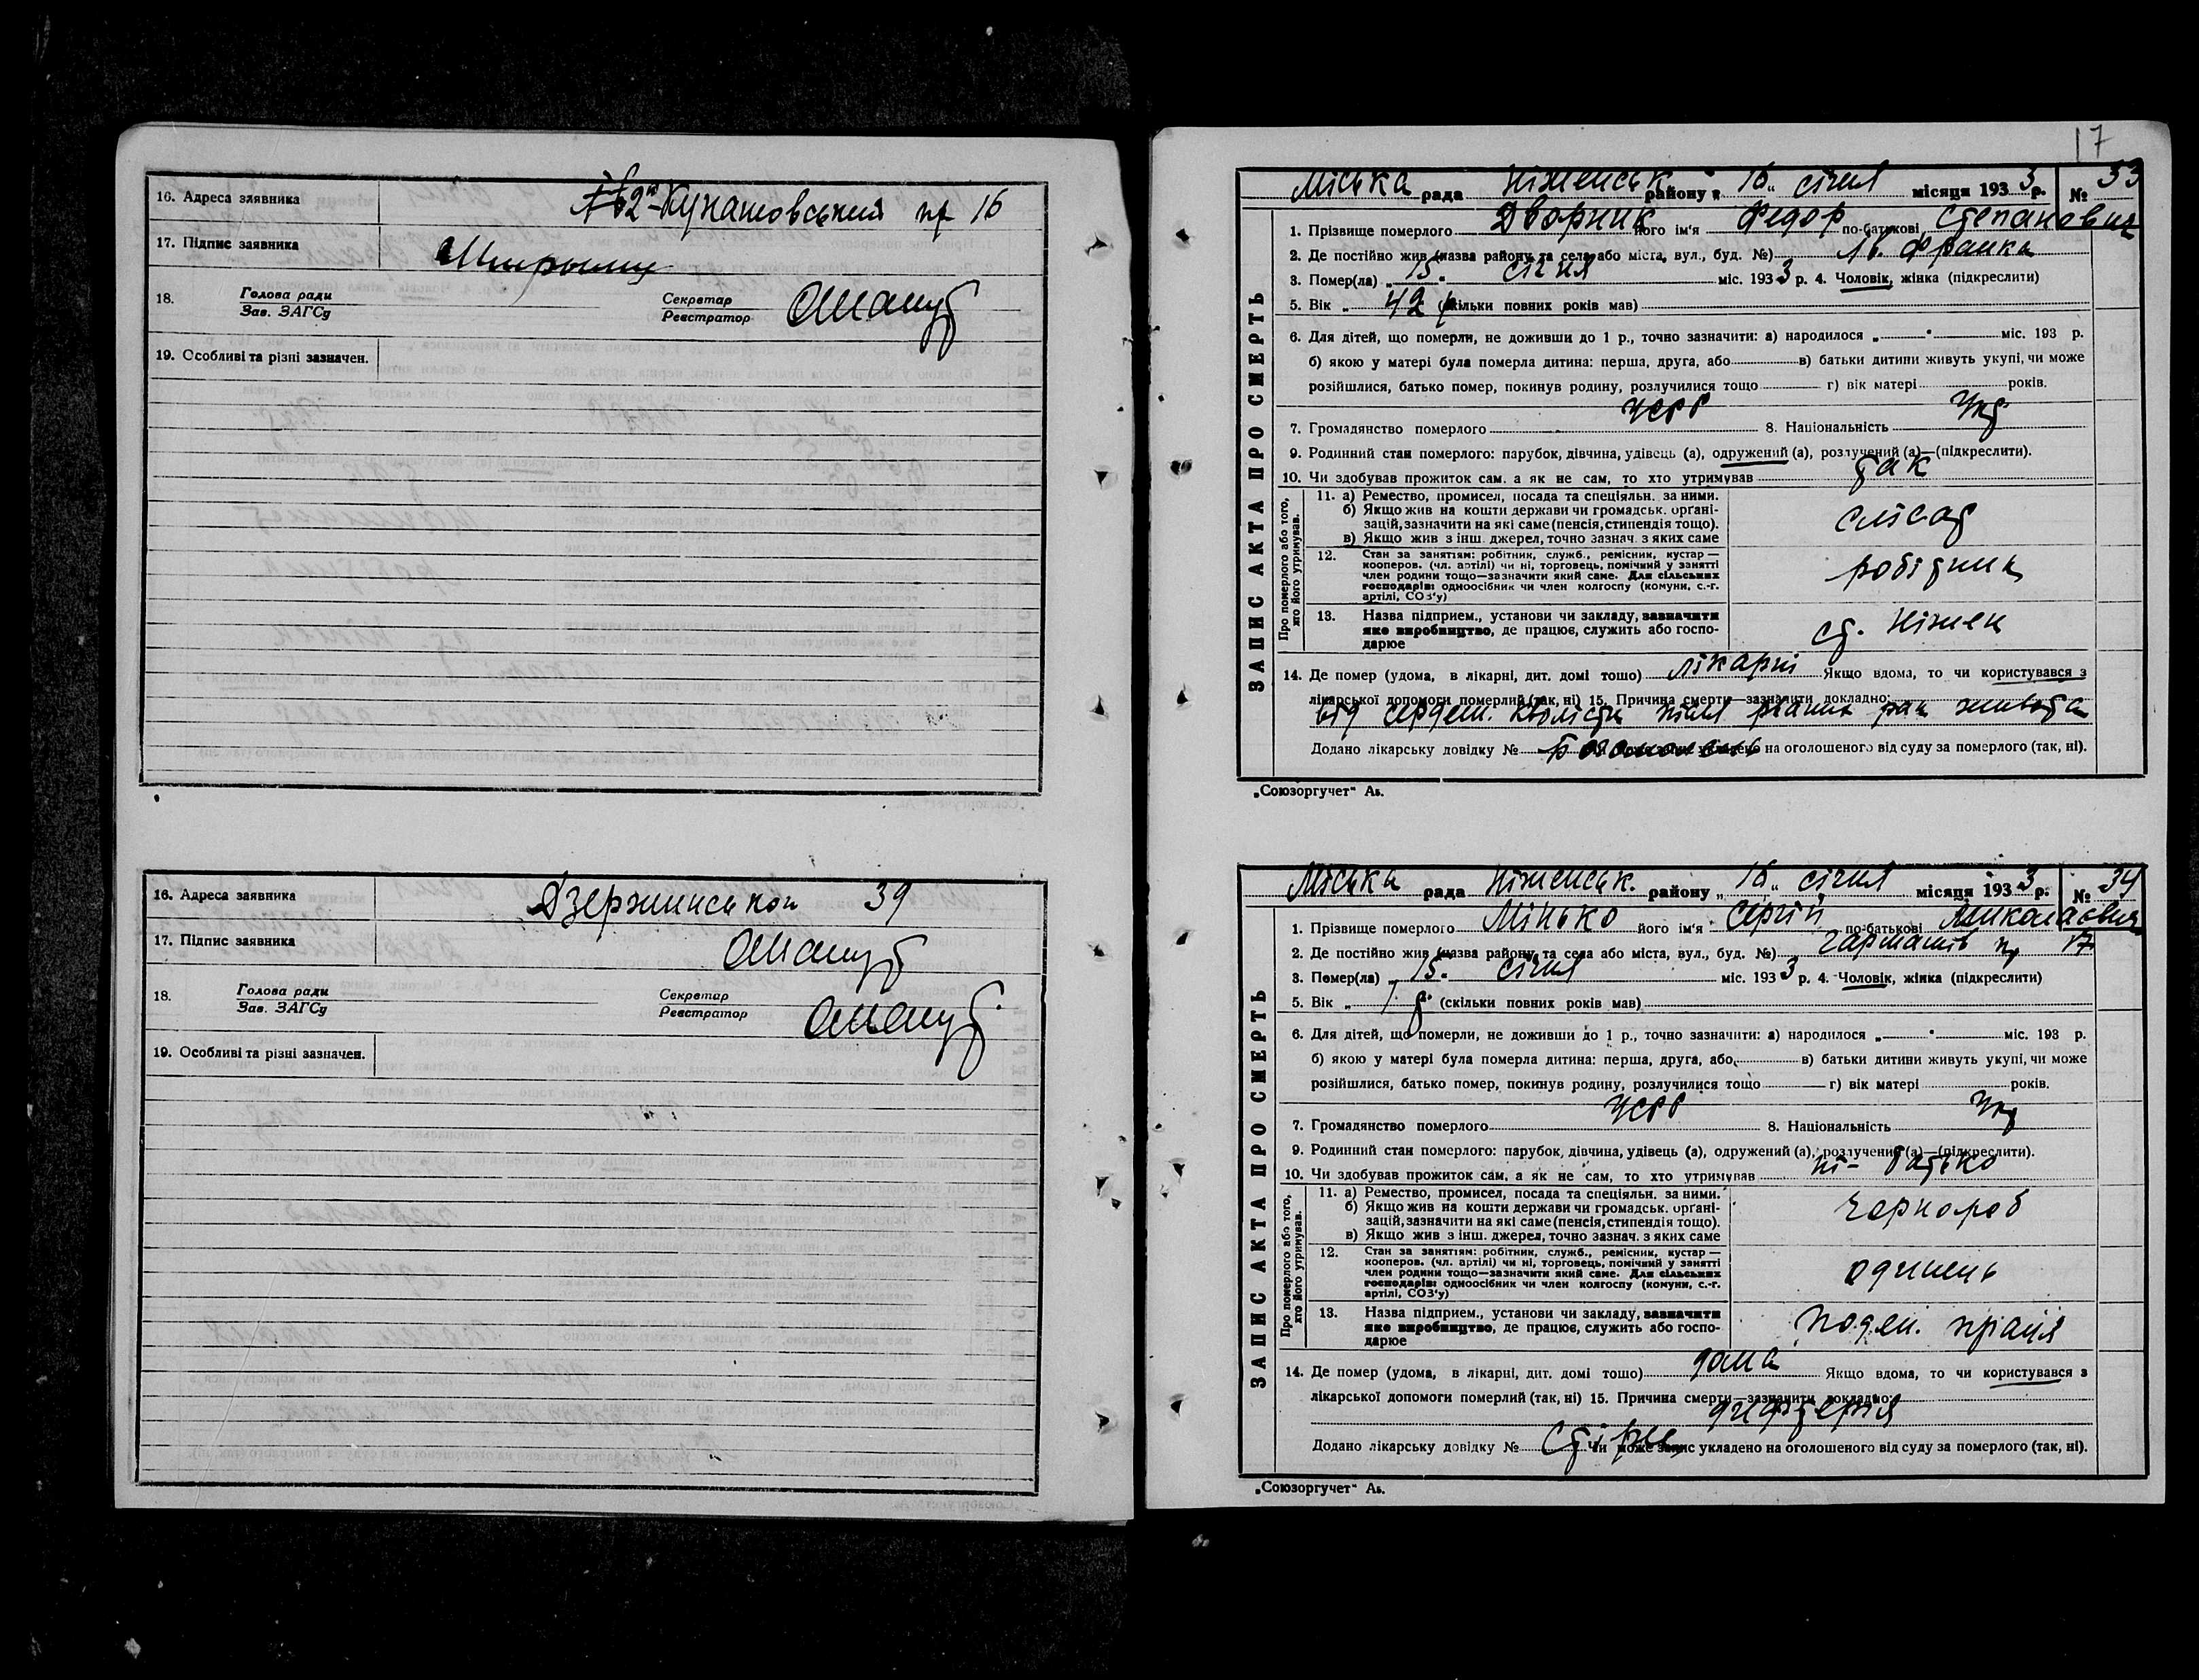 16. Адреса заявника 2й Кунашовський пр 16
17. Підпис заявника
18. Голова ради Секретар
Зав. ЗАГСу Реєстратор
19. Особливі та різні зазначен.
16. Адреса заявника Дзержинської 39
17. Підпис заявника
18. Голова ради Секретар
Зав. ЗАГСу Реєстратор
19. Особливі та різні зазначен.
17
ЗАПИС АКТА ПРО СМЕРТЬ
Міська рада Ніженськ. району „16„ січня місяця 1933 р. № 33
1. Прізвище померлого Дворник його ім'я Федор по-батькові Степанович
2. Де постійно жив (назва району та села або міста, вул., буд. №) Ів. Франка
3. Помер(ла) „15. січня міс. 1933 р. 4. Чоловік, жінка (підкреслити)
5. Вік „ 42 р (скільки повних років мав)
6. Для дітей, що померли, не доживши до 1 р., точно зазначити: а) народилося „ " міс. 193 р.
б) якою у матері була померла дитина: перша, друга, або в) батьки дитини живуть укупі, чи може
розійшлися, батько помер, покинув родину, розлучилися тощо г) вік матері років.
7. Громадянство померлого УСРР 8. Національність Укр
9. Родинний стан померлого: парубок, дівчина, удівець (а), одружений (а), розлучений (а)—(підкреслити).
10. Чи здобував прожиток сам, а як не сам, то хто утримував так
Про померлого або того, хто його утримував.
11. а) Ремество, промисел, посада та спеціяльн. за ними.
б) Якщо жив на кошти держави чи громадськ. орґані-
зацій, зазначити на які саме (пенсія, стипендія тощо).
в) Якщо жив з інш. джерел, точно зазнач. з яких саме
слюсар
12. Стан за заняттям: робітник, служб., ремісник, кустар —
кооперов. (чл. артілі) чи ні, торговець, помічний у занятті
член родини тощо—зазначити який саме. Для сільських
господарів: одноосібник чи член колгоспу (комуни, с.-г.
артілі, СОЗ'у)
робітник
13. Назва підприєм., установи чи закладу, зазначити
яке виробництво, де працює, служить або госпо-
дарює
ст. Ніжен
14. Де помер (удома, в лікарні, дит. домі тощо) лікарні Якщо вдома, то чи користувався з
лікарської допомоги померлий (так, ні) 15. Причина смерти—зазначити докладно:
від серцев. після рак живота
Додано лікарську довідку № на оголошеного від суду за померлого (так, ні).
„Союзоргучет" Ав.
ЗАПИС АКТА ПРО СМЕРТЬ
Міська рада Ніженськ. району „16„ січня місяця 1933 р. № 34
1. Прізвище померлого Мінько його ім'я Сергій по-батькові Миколаєвич
2. Де постійно жив (назва району та села або міста, вул., буд. №) Гарматів пр 17
3. Помер(ла) „15. січня міс. 1933 р. 4. Чоловік, жінка (підкреслити)
5. Вік „ 7 р. (скільки повних років мав)
6. Для дітей, що померли, не доживши до 1 р., точно зазначити: а) народилося „ " міс. 193 р.
б) якою у матері була померла дитина: перша, друга, або в) батьки дитини живуть укупі, чи може
розійшлися, батько помер, покинув родину, розлучилися тощо г) вік матері років.
7. Громадянство померлого УСРР 8. Національність Укр
9. Родинний стан померлого: парубок, дівчина, удівець (а), одружений (а), розлучений (а)—(підкреслити).
10. Чи здобував прожиток сам, а як не сам, то хто утримував ні - батько
Про померлого або того, хто його утримував.
11. а) Ремество, промисел, посада та спеціяльн. за ними.
б) Якщо жив на кошти держави чи громадськ. орґані-
зацій, зазначити на які саме (пенсія, стипендія тощо).
в) Якщо жив з інш. джерел, точно зазнач. з яких саме
чернороб
12. Стан за заняттям: робітник, служб., ремісник, кустар —
кооперов. (чл. артілі) чи ні, торговець, помічний у занятті
член родини тощо—зазначити який саме. Для сільських
господарів: одноосібник чи член колгоспу (комуни, с.-г.
артілі, СОЗ'у)
одинець
13. Назва підприєм., установи чи закладу, зазначити
яке виробництво, де працює, служить або госпо-
дарює
поден. праця
14. Де помер (удома, в лікарні, дит. домі тощо) дома Якщо вдома, то чи користувався з
лікарської допомоги померлий (так, ні) 15. Причина смерти—зазначити докладно:
дифтерія
Додано лікарську довідку № Чи може запис укладено на оголошеного від суду за померлого (так, ні).
„Союзоргучет" Ав.